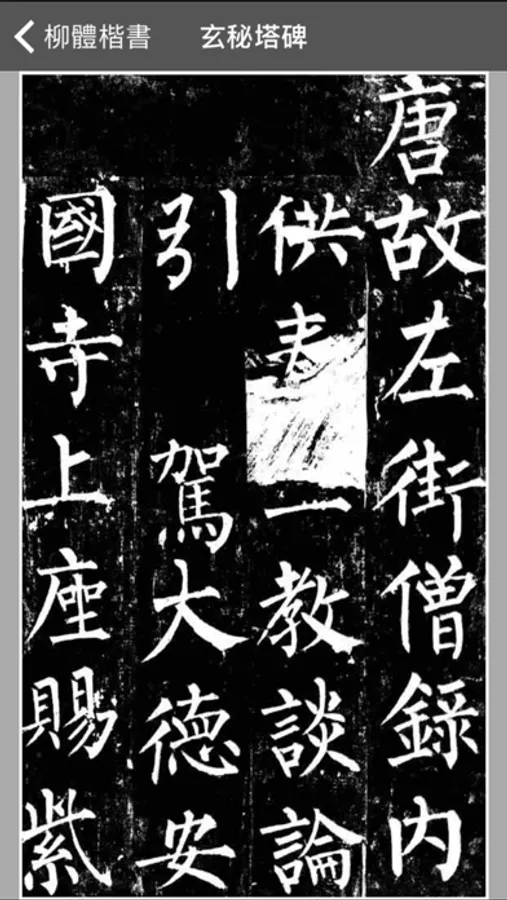 柳體楷書 玄秘塔碑
唐故左街僧録内
供奉一教談論
引駕大德安
國寺上座賜紫